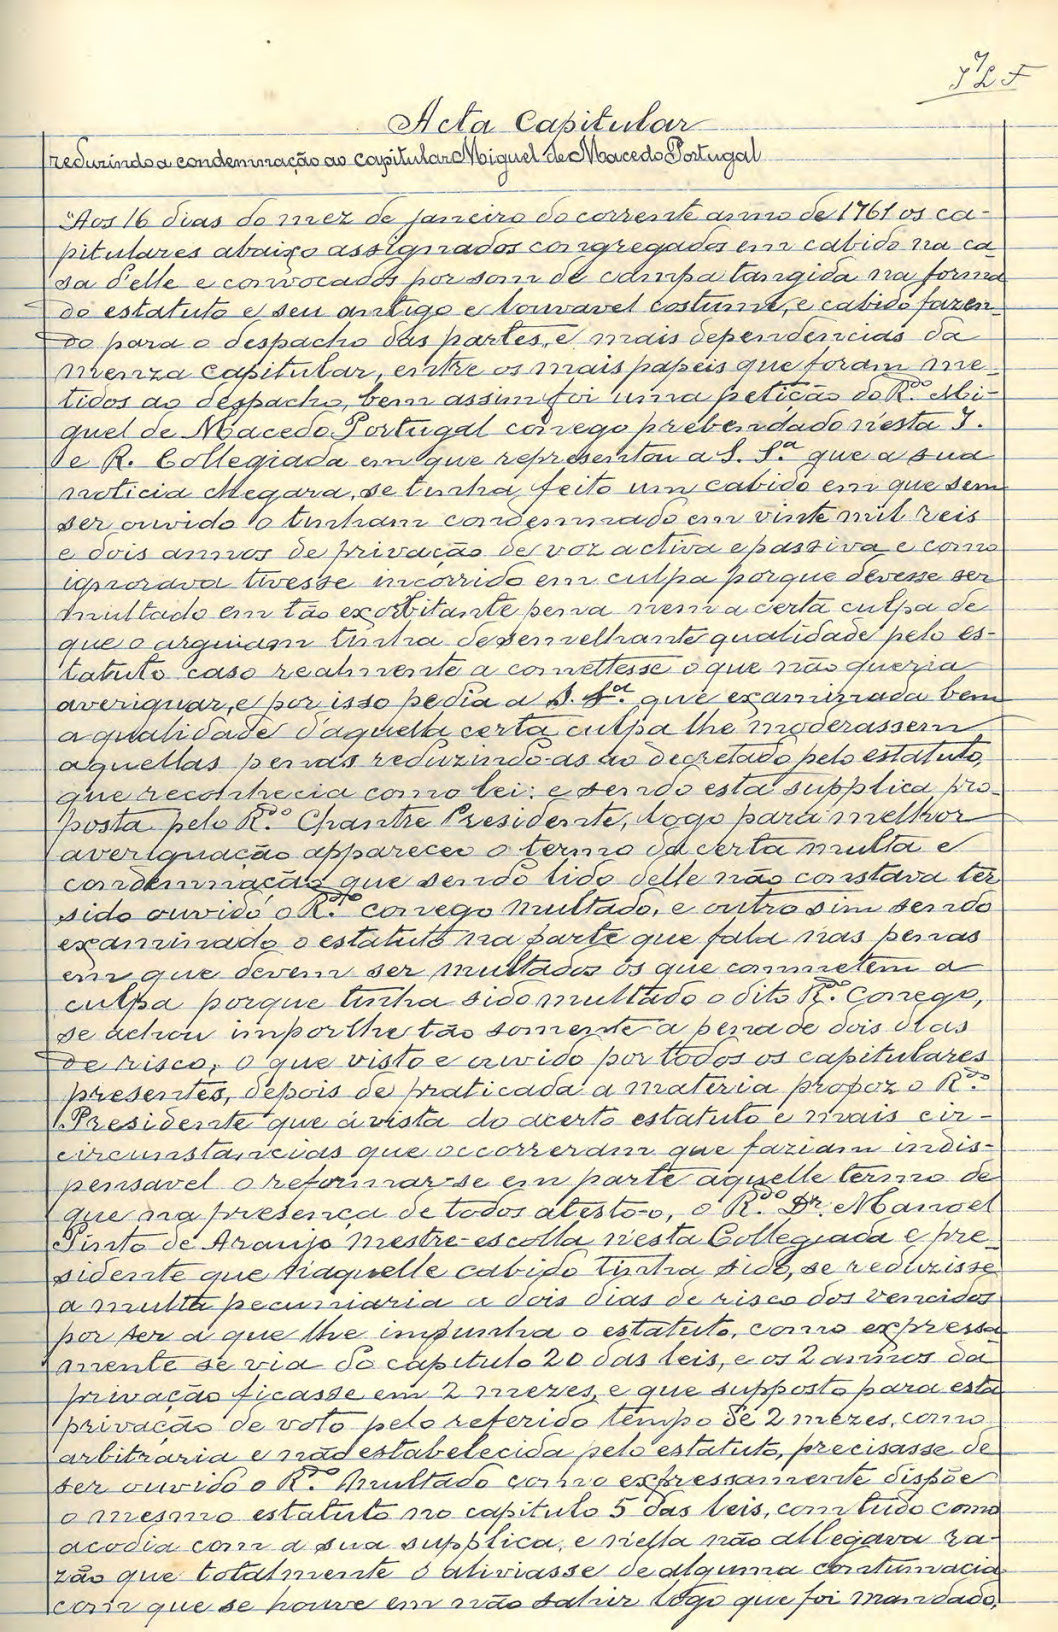 Acta Capitular
reduzindo a condemnação ao capitular Miguel de Macedo Portugal
"Aos 16 dias do mez de janeiro do corrente anno de 1761 os ca-
pitulares abaixo assignados congregados em cabido na ca
sa d'elle e convocados por som de campa tangida na forma
do estatuto e seu antigo e louvavel costume, e cabido fazen-
do para o despacho das partes, e mais dependencias da
menza capitular, entre os mais papeis que foram me-
tidos ao despacho, bem assim foi uma petição do R.do Mi-
guel de Macedo Portugal conego prebendado n'esta I.
e R. Collegiada em que representou a S. S.a que a sua
noticia chegara, se tinha feito um cabido em que sem
ser ouvido o tinham condemnado em vinte mil reis
e dois annos de privação de voz activa e passiva e como
ignorava tivesse incorrido em culpa porque devesse ser
multado em tão exorbitante pena nem a certa culpa de
que o arguiam tinha de semelhante qualidade pelo es-
tatuto caso realmente a comettesse o que não queria
averiguar, e por isso pedia a S. S.a que examinada bem
a qualidade d'aquella certa culpa lhe moderassem
aquellas penas reduzindo-as ao decretado pelo estatuto,
que reconhecia como lei: e sendo esta supplica pro-
posta pelo R.do Chantre Presidente, logo para melhor
averiguação appareceo o termo da certa multa e
condemnação que sendo lido delle não constava ter
sido ouvido o R.do conego multado, e outro sim sendo
examinado o estatuto na parte que fala nas penas
em que devem ser multados os que commetem a
culpa porque tinha sido multado o dito R.do Conego,
se achou impor lhe tão somente a pena de dois dias
de risco, o que visto e ouvido por todos os capitulares
presentes, depois de praticada a materia propoz o R.do
Presidente que á vista do acerto estatuto e mais cir-
circumstancias que occorreram que faziam indis-
pensavel o reformar-se em parte aquelle termo de
que na presença de todos atesto-o, o R.do Dr. Manoel
Pinto de Araujo Mestre-escolla n'esta Collegiada e pre-
sidente que n'aquelle cabido tinha sido, se reduzisse
a multa pecuniaria a dois dias de risco dos vencidos
por ser a que lhe impunha o estatuto, como expressa
mente se via do capitulo 20 das leis, e os 2 annos da
privação ficasse em 2 mezes, e que supposto para esta
privação de voto pelo referido tempo de 2 mezes, como
arbitraria e não estabelecida pelo estatuto, precisasse de
ser ouvido o R.do Multado como expressamente dispõe
o mesmo estatuto no capitulo 5 das leis, com tudo como
acodia com a sua supplica, e n'ella não allegava ra-
zão que totalmente o aliviasse de alguma contumacia
com que se houve em não sahir logo que foi mandado,